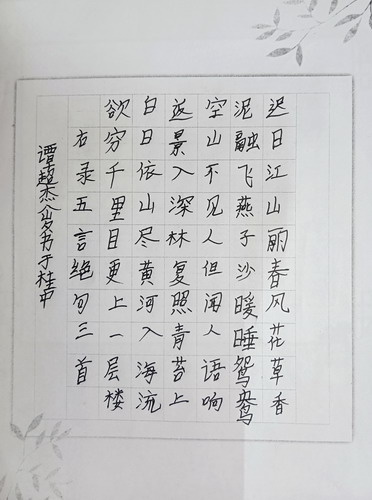 迟日江山丽春风花草香
泥融飞燕子沙暖睡鸳鸯
空山不见人但闻人语响
返景入深林复照青苔上
白日依山尽黄河入海流
欲穷千里目更上一层楼
右录五言绝句三首
谭超杰书于桂中